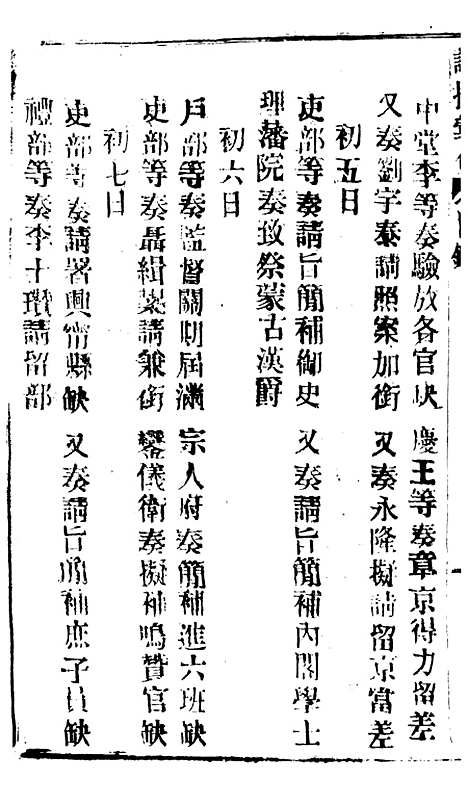 中堂李等奏驗放各官缺 慶王等奏章京得力留差
又奏劉字泰請照案加銜 又奏永隆擬請留京當差
初五日
吏部等奏請旨簡補御史 又奏請旨簡補內閣學士
理藩院奏致祭蒙古漢爵
初六日
戶部等奏監督關期屆滿 宗人府奏簡補進六班缺
吏部等奏聶緝椝請兼銜 鑾儀衛奏擬補鳴贊官缺
初七日
吏部等奏請署興甯縣缺 又奏請旨簡補庶子員缺
禮部等奏李士瓚請留部